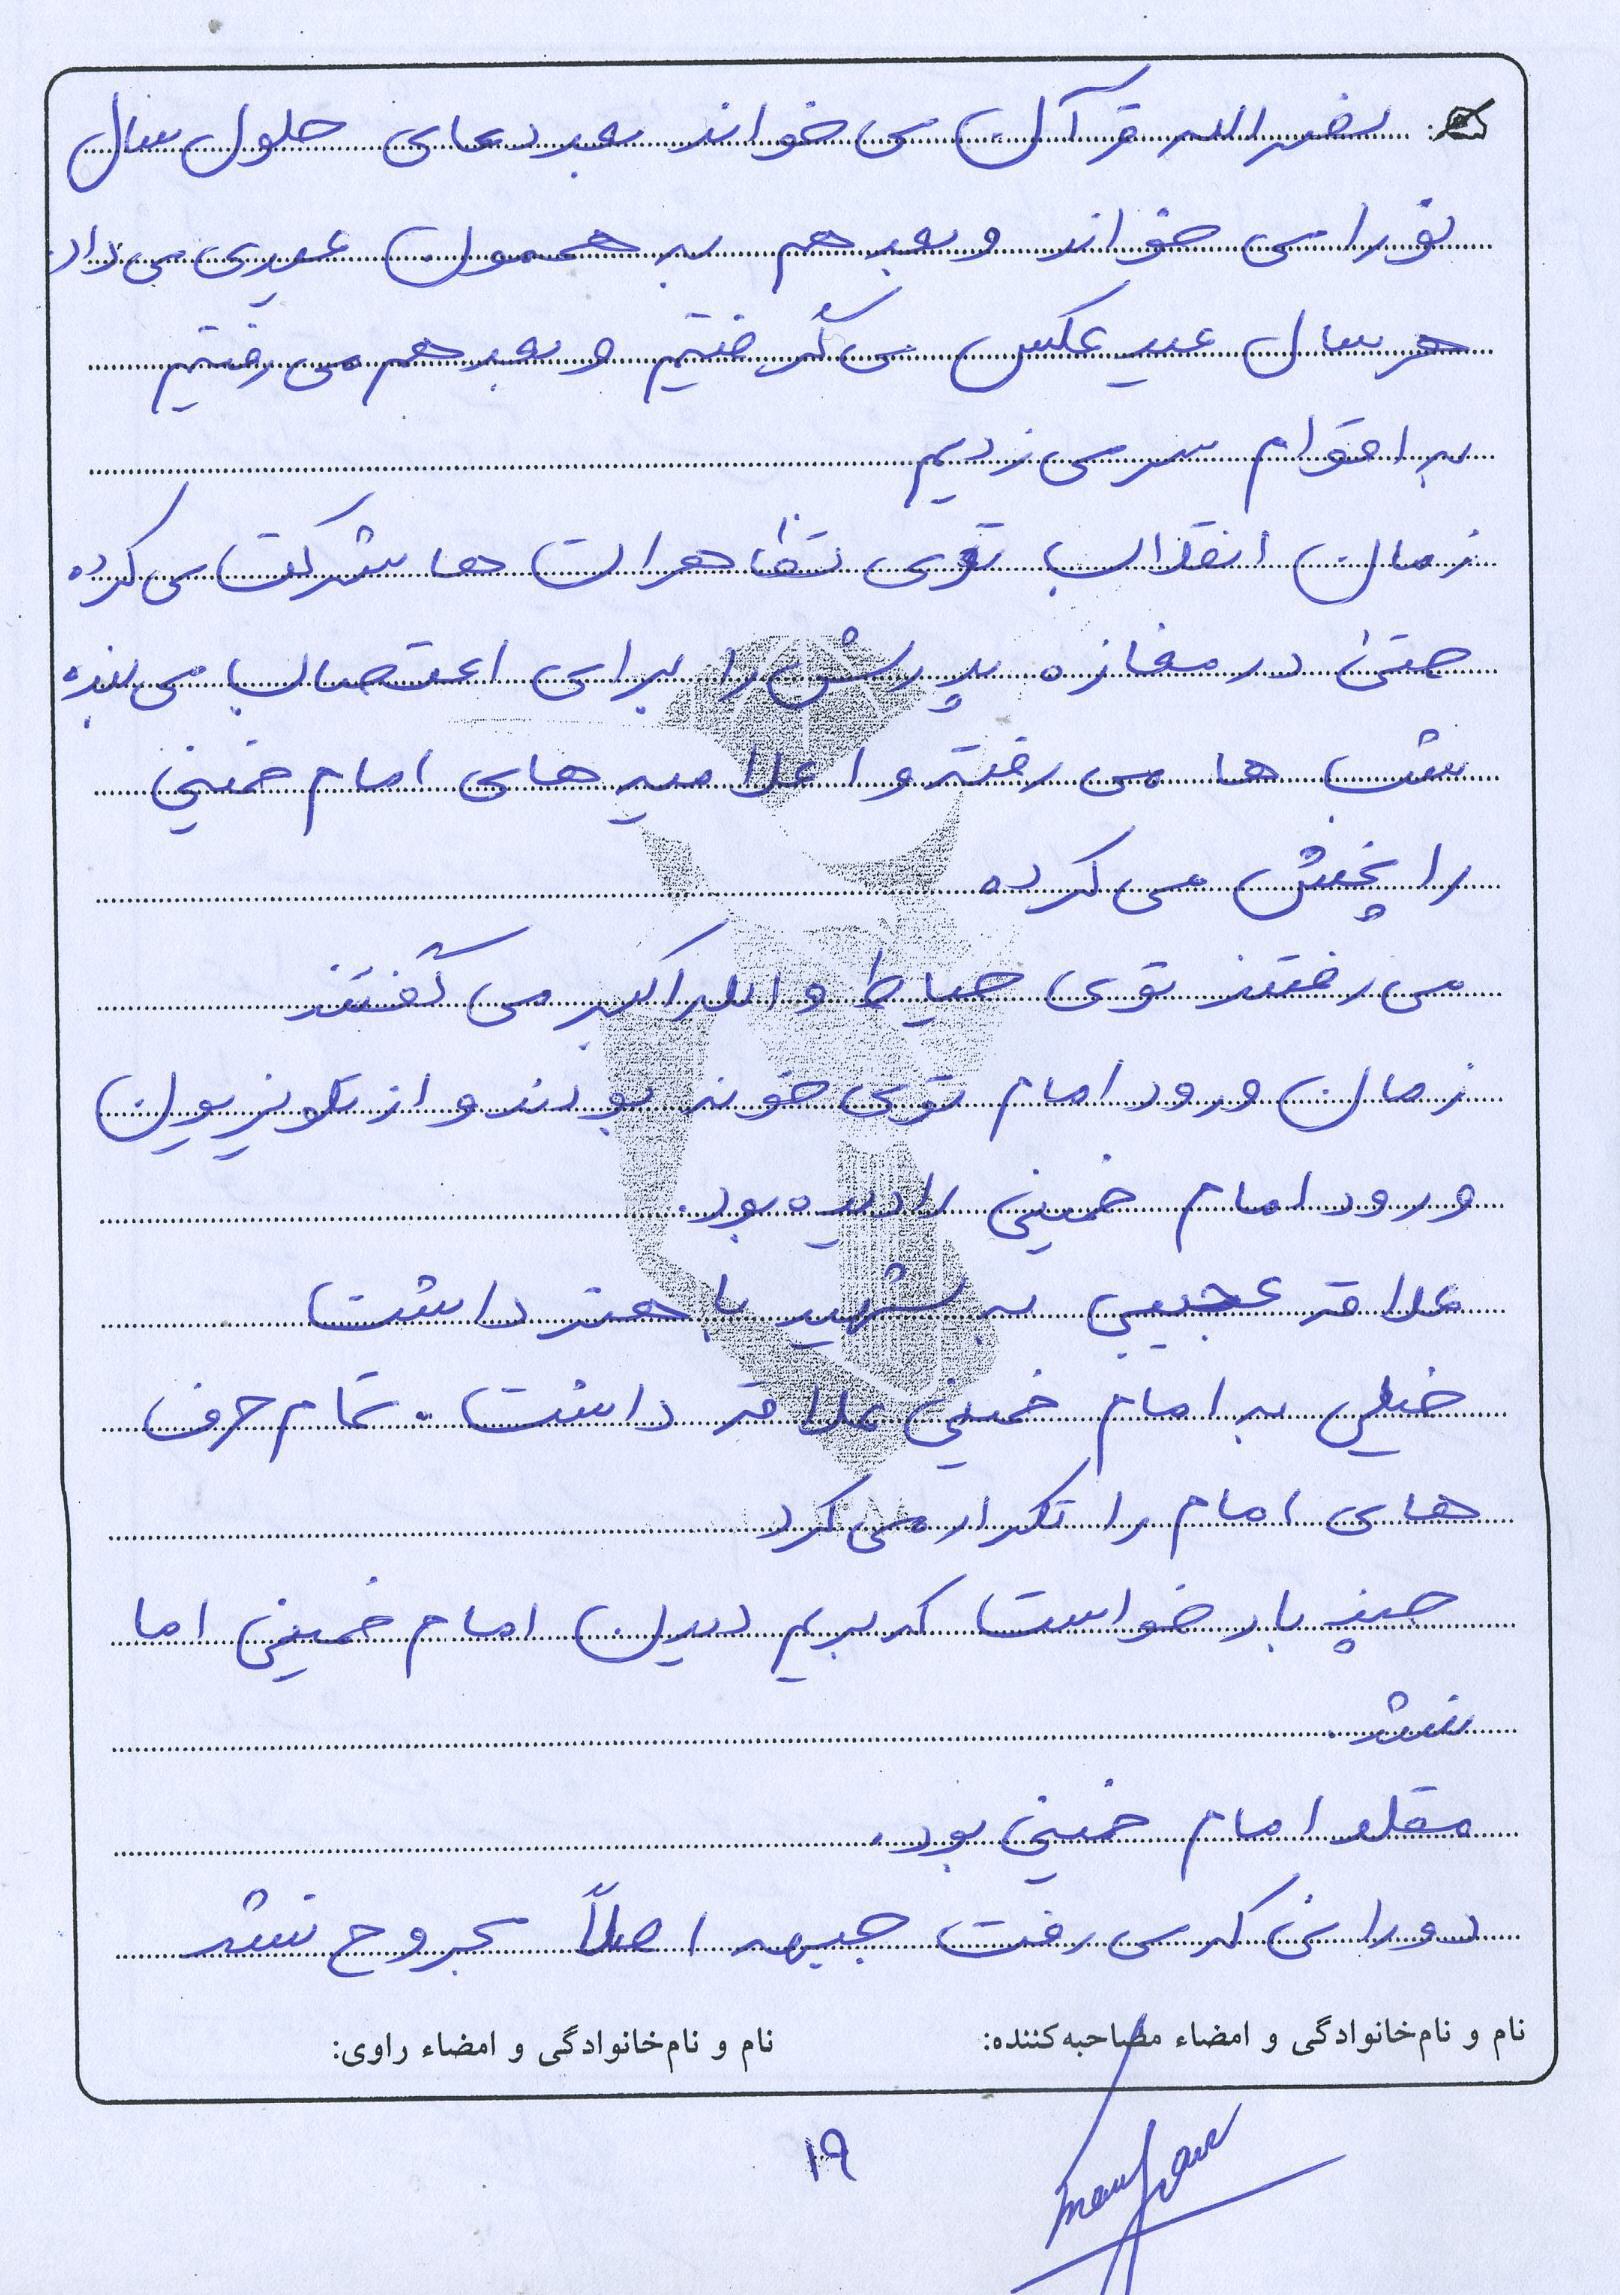 نصرالله قرآن می خواند بعد دعای حلول سال
نو را می خواند و بعد هم به همون عیدی می داد.
هر سال عید عکس می گرفتیم و بعد هم می رفتیم
به اقوام سر می زدیم
زمان انقلاب توی تظاهرات ها شرکت می کرده
حتی در مغازه پدرش را برای اعتصاب می بنده
شب ها می رفته و اعلامیه های امام خمینی
را پخش می کرده
می رفتند توی حیاط و الله اکبر می گفتند
زمان ورود امام توی خونه بودند و از تلویزیون
ورود امام خمینی را دیده بود.
علاقه عجیبی به شهید باهنر داشت
خیلی به امام خمینی علاقه داشت. تمام حرف
های امام را تکرار می کرد
چند بار خواست که بریم دیدن امام خمینی اما
نشد.
مقلد امام خمینی بود.
دورانی که می رفت جبهه اصلاً مجروح نشد
نام و نام‌خانوادگی و امضاء مصاحبه‌کننده:
نام و نام‌خانوادگی و امضاء راوی:
۱۹